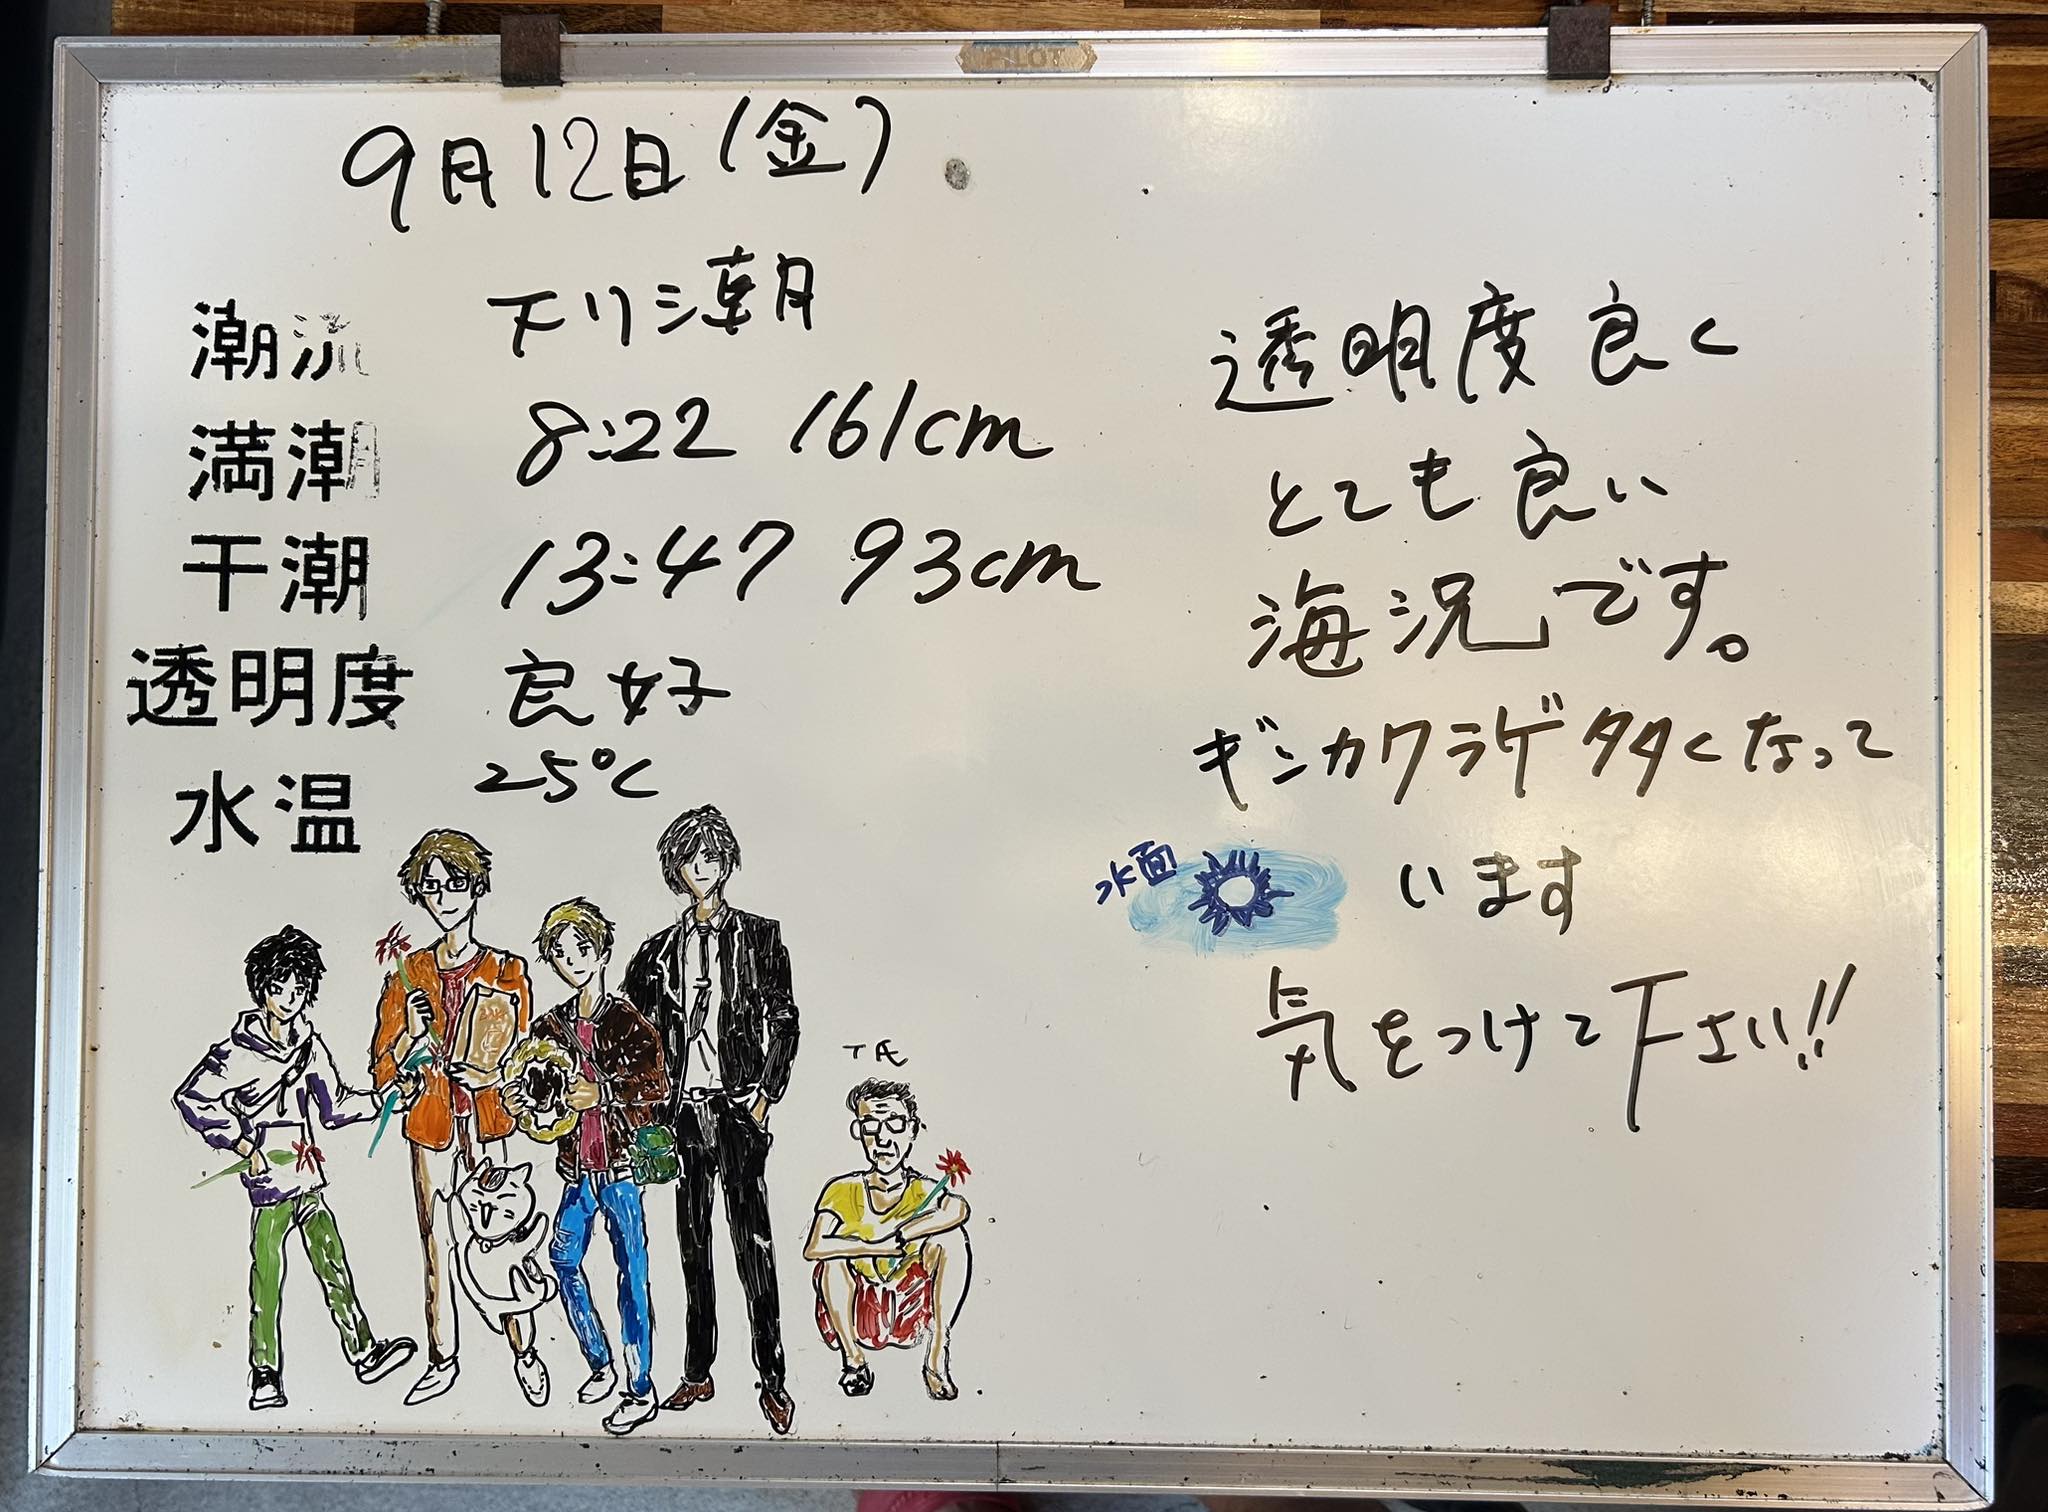 PILOT
9月12日(金)
潮流 下り潮
満潮 8:22 161cm
干潮 13:47 93cm
透明度 良好
水温 25℃
透明度良く
とても良い
海況です。
ギンカクラゲ多くなって
水面
います
気をつけて下さい!!